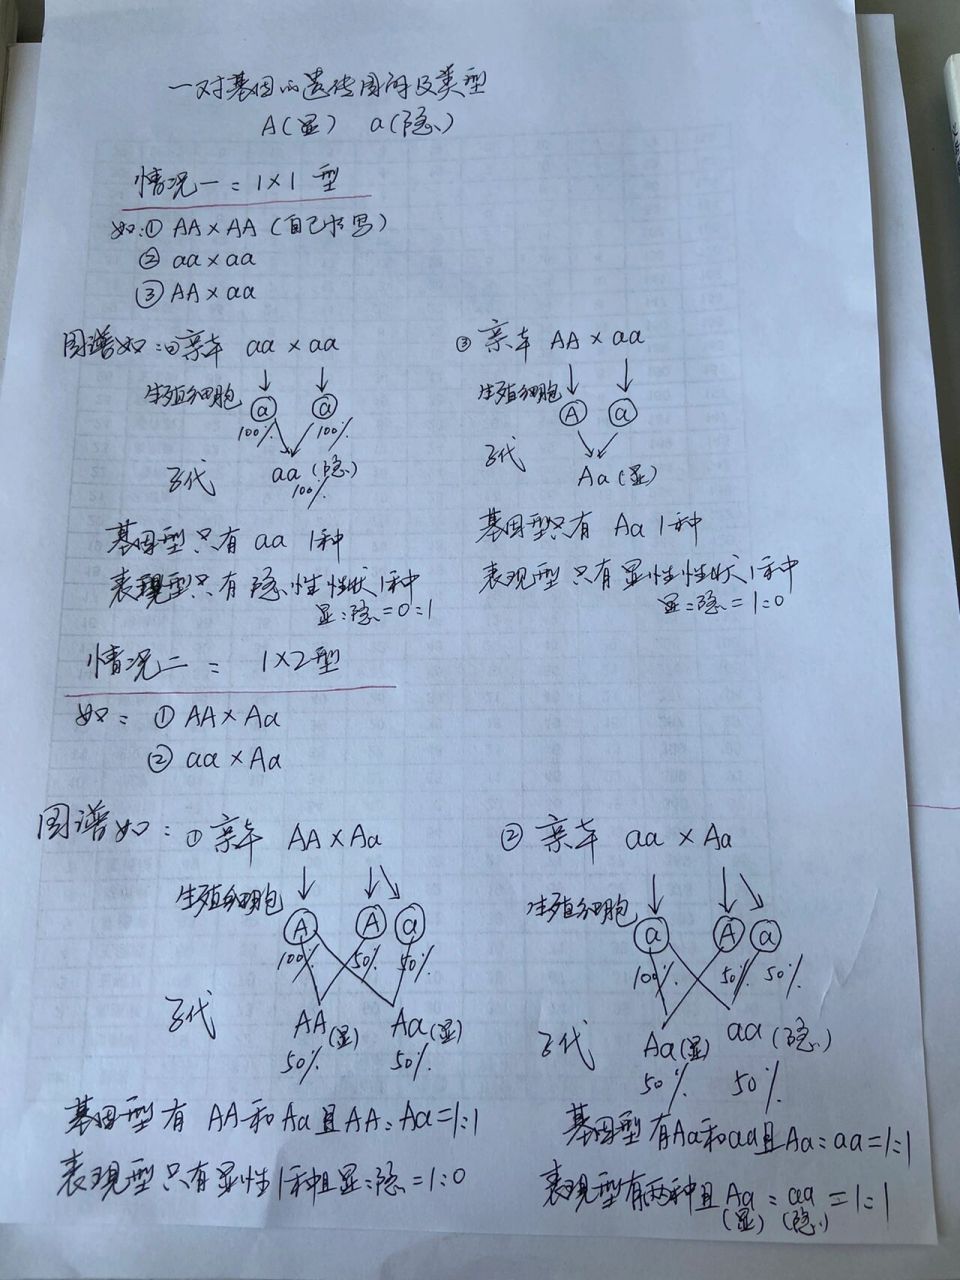 一对基因的遗传图解及类型
A(显) a(隐)
情况一: 1×1 型
如:① AA×AA(自己书写)
② aa×aa
③ AA×aa
图谱如:②亲本 aa×aa
生殖细胞 a a
100% 100%
子代 aa(隐)
100%
基因型只有 aa 1种
表现型只有隐性性状1种
显:隐=0:1
③ 亲本 AA×aa
生殖细胞 A a
子代 Aa(显)
基因型只有 Aa 1种
表现型只有显性性状1种
显:隐=1:0
情况二: 1×2型
如: ① AA×Aa
② aa×Aa
图谱如: ① 亲本 AA×Aa
生殖细胞 A A a
100% 50% 50%
子代 AA(显) Aa(显)
50% 50%
基因型有 AA和Aa且AA:Aa=1:1
表现型只有显性1种且显:隐=1:0
② 亲本 aa×Aa
生殖细胞 a A a
100% 50% 50%
子代 Aa(显) aa(隐)
50% 50%
基因型有Aa和aa且Aa:aa=1:1
表现型有两种且Aa:aa=1:1
(显) (隐)